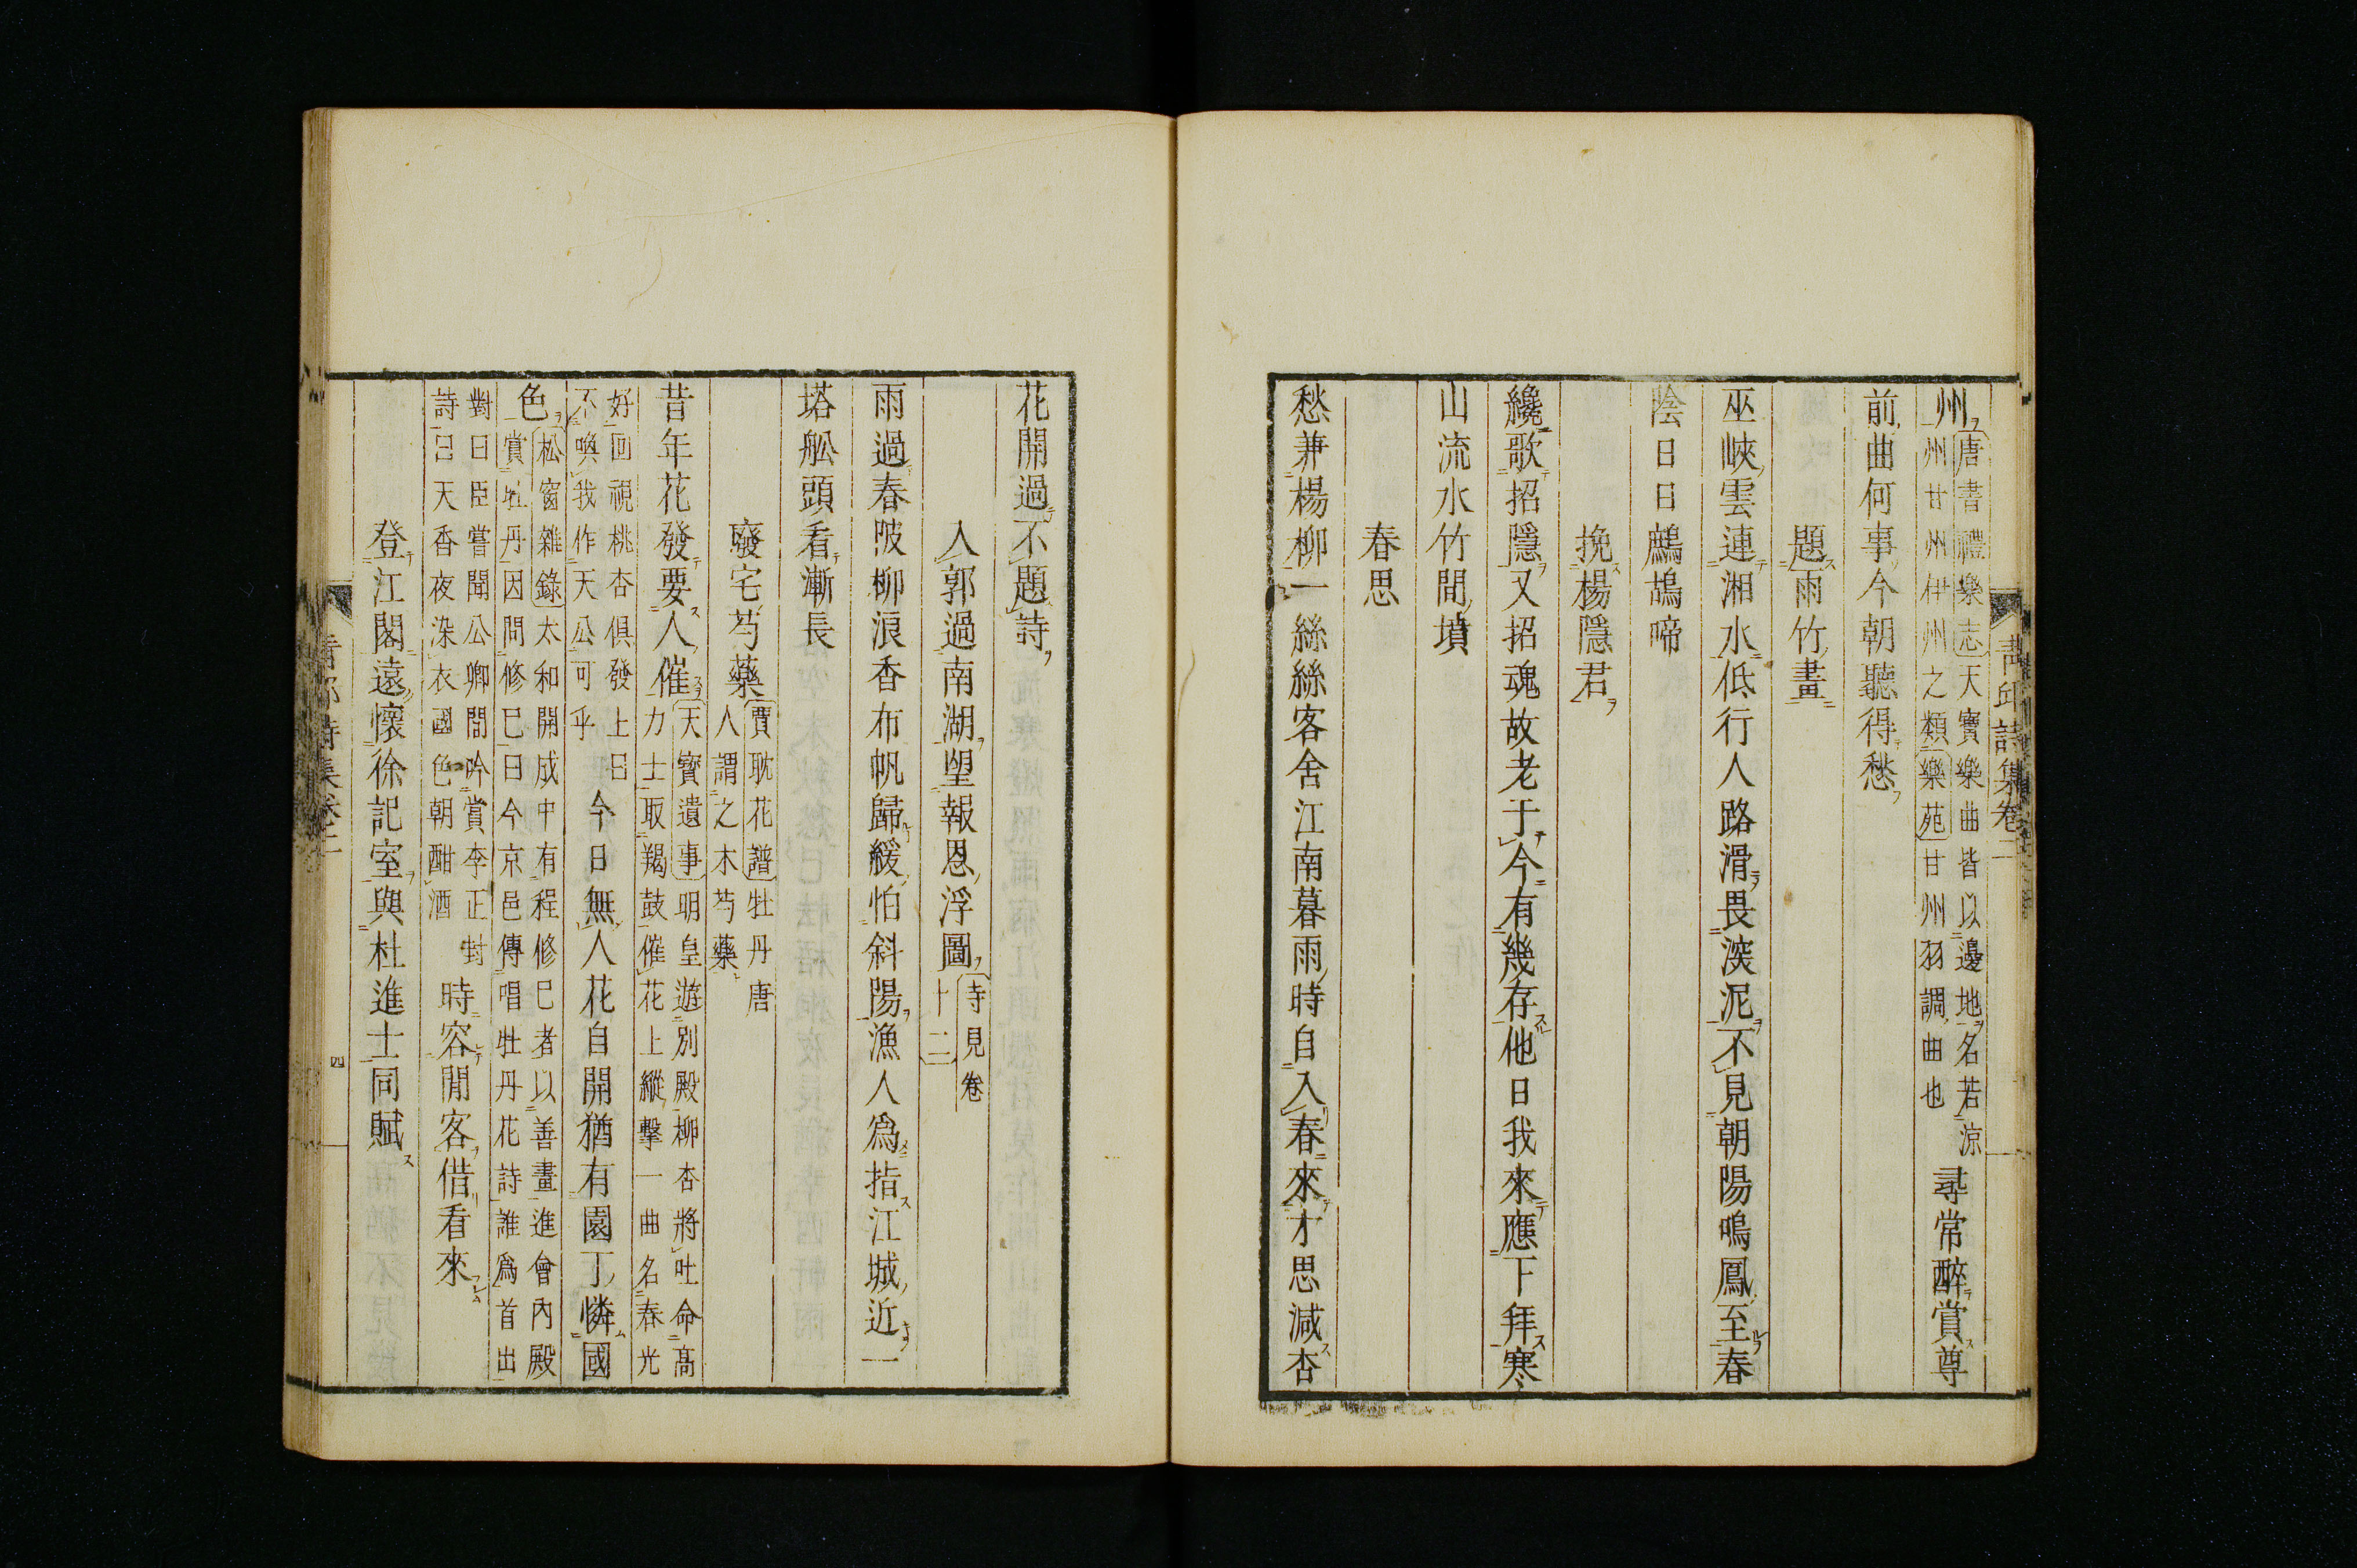 州唐書禮樂志天寶樂曲皆以邊地名若涼
州甘州伊州之類樂苑甘州羽調曲也尋常醉賞尊
前曲何事今朝聽得愁
題雨竹畫
巫峽雲連湘水低行人路滑畏深泥不見朝陽鳴鳳至春
陰日日鷓鴣啼
挽楊隱君
纔歌招隱又招魂故老于今有幾存他日我來應下拜寒
山流水竹間墳
春思
愁兼楊柳一絲絲客舍江南暮雨時自入春來才思減杏
花開過不題詩
入郭過南湖望報恩浮圖寺見卷
十二
雨過春陂柳浪香布帆歸緩怕斜陽漁人爲指江城近一
塔船頭看漸長
廢宅芍藥賈耽花譜牡丹唐
人謂之木芍藥
昔年花發要人催天寶遺事明皇遊別殿柳杏將吐命高
力士取羯鼓催花上縱擊一曲名春光
好回視桃杏俱發上曰
不喚我作天公可乎今日無人花自開猶有園丁憐國
色松窗雜錄太和開成中有程修巳者以善畫進會內殿
賞牡丹因問修巳曰今京邑傳唱牡丹花詩誰爲首出
對曰臣嘗聞公卿間吟賞李正封
詩曰天香夜染衣國色朝酣酒時容閒客借看來
登江閣遠懷徐記室與杜進士同賦
青邱詩集卷二
四